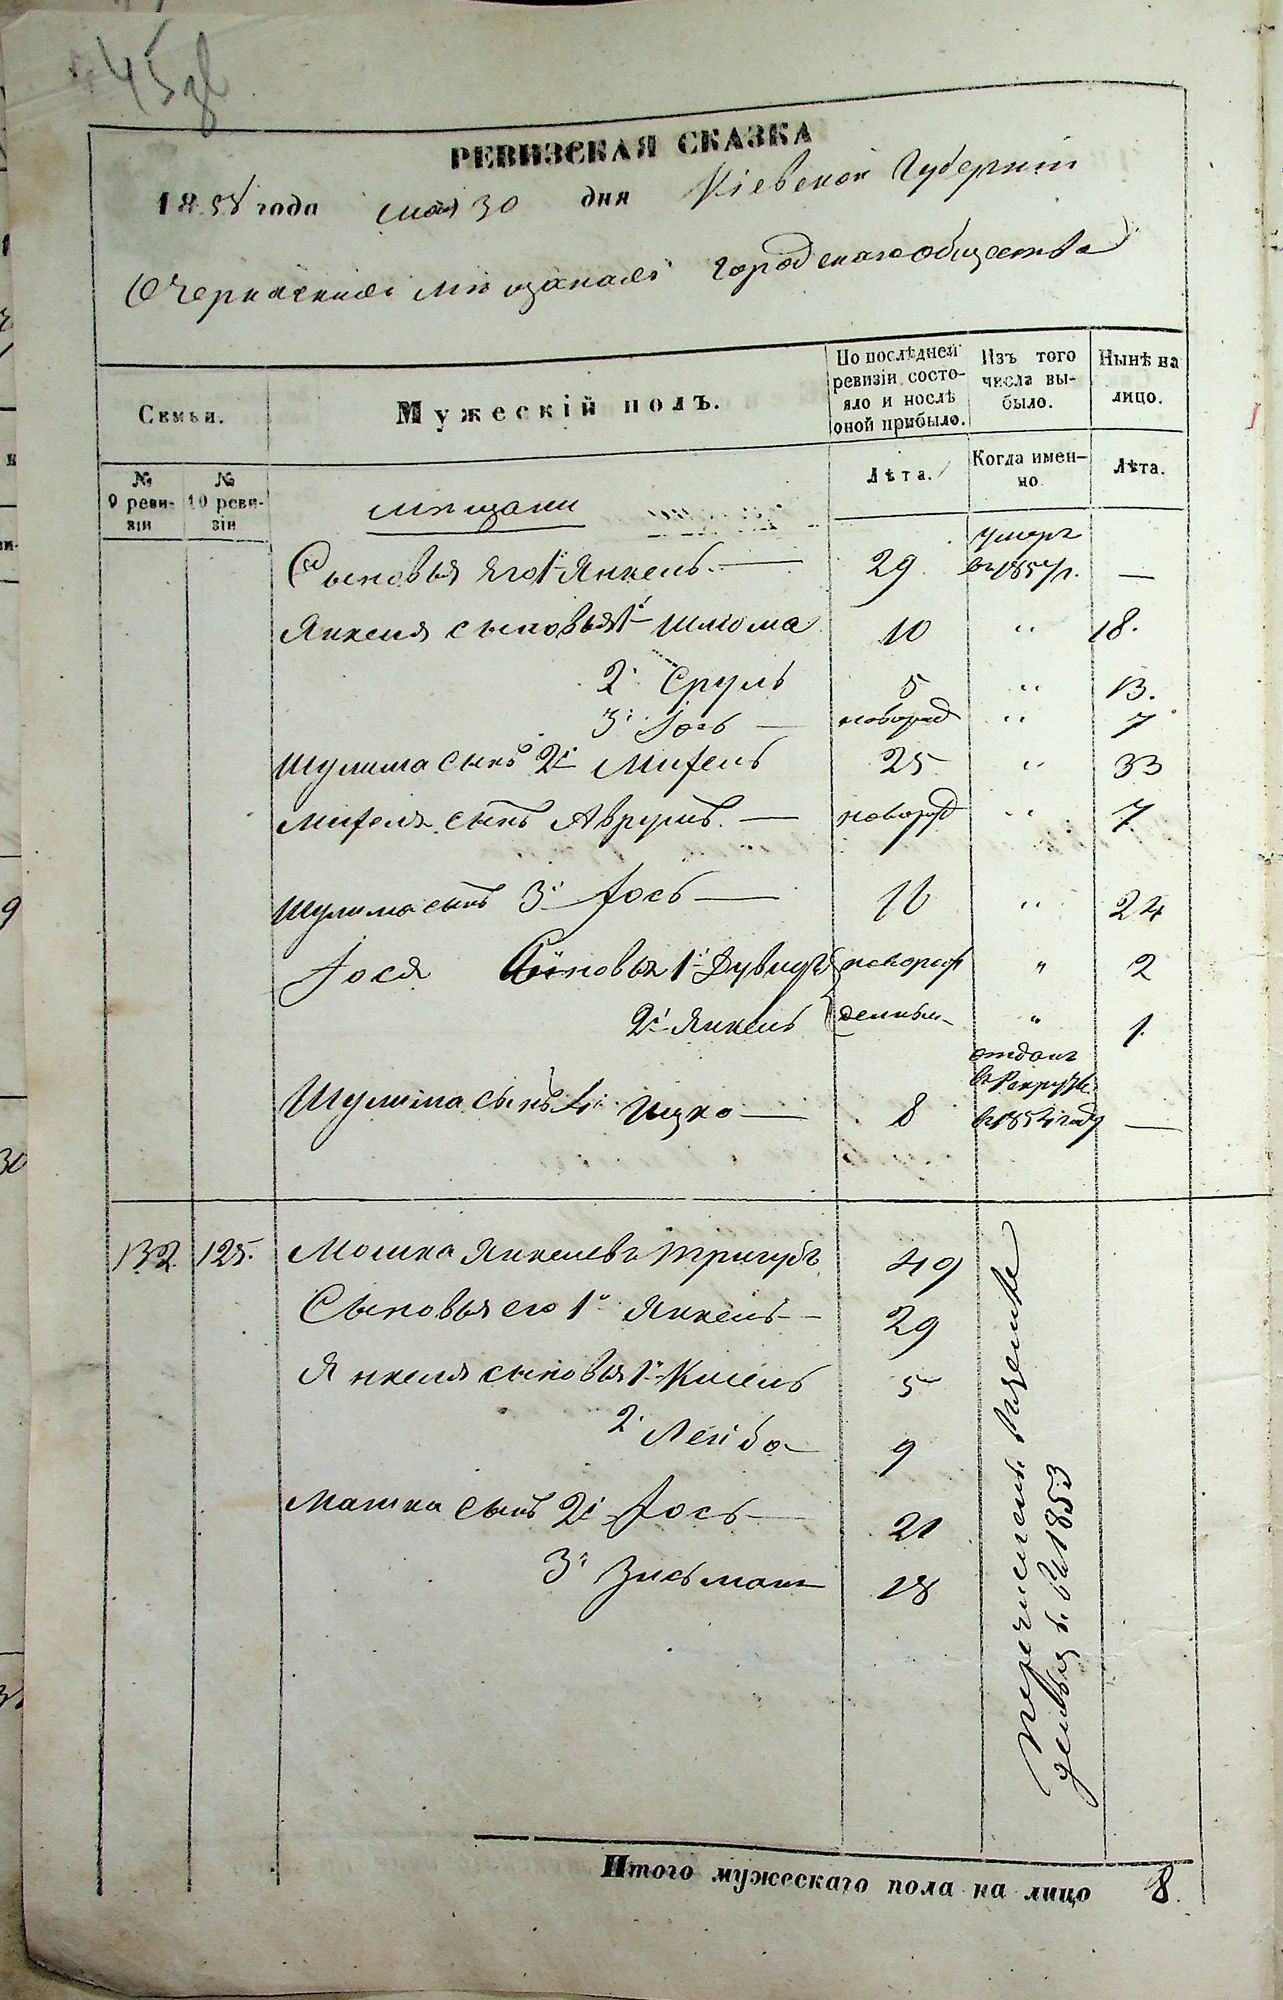 45
РЕВИЗСКАЯ СКАЗКА
1858 года мая 30 дня Кіевской Губерніи
О Черкаскихъ мѣщанахъ городскаго общества
Семьи.
Мужескій полъ.
По послѣдней ревизіи состояло и послѣ оной прибыло.
Изъ того числа выбыло.
Нынѣ на лицо.
№ 9 ревизіи
№ 10 ревизіи
мѣщани
Лѣта.
Когда именно
Лѣта.
Сыновья его 1й Янкель — 29 умеръ въ 1857 г. —
Янкеля сыновья 1й Шліома 10 " 18.
2й Сруль 5 " 13.
3й Іось — новород " 7
Шулима сынъ 2й Михель 25 " 33
Михеля сынъ Аврумъ — новород " 7
Шулима сынъ 3й Іось — 16 " 24
Іося Сыновья 1й Дувидъ новорож " 2
2й Янкель денные " 1
Шулима сынъ 4й Ицко — 8 отданъ въ Рекруты въ 1854 году —
132 125. Мошка Янкелевъ Тригубъ 49
Сыновья его 1й Янкель — 29
Янкеля сыновья 1й Кисель 5
2й Лейба 9
Мошка сынъ 2й Іось — 21
3й Зисьман 18
перечислены
въ 1853
Итого мужескаго пола на лицо 8.